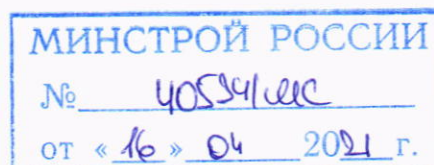 МИНСТРОЙ РОССИИ
№ 40594/мс
от « 16 » 04 2021 г.